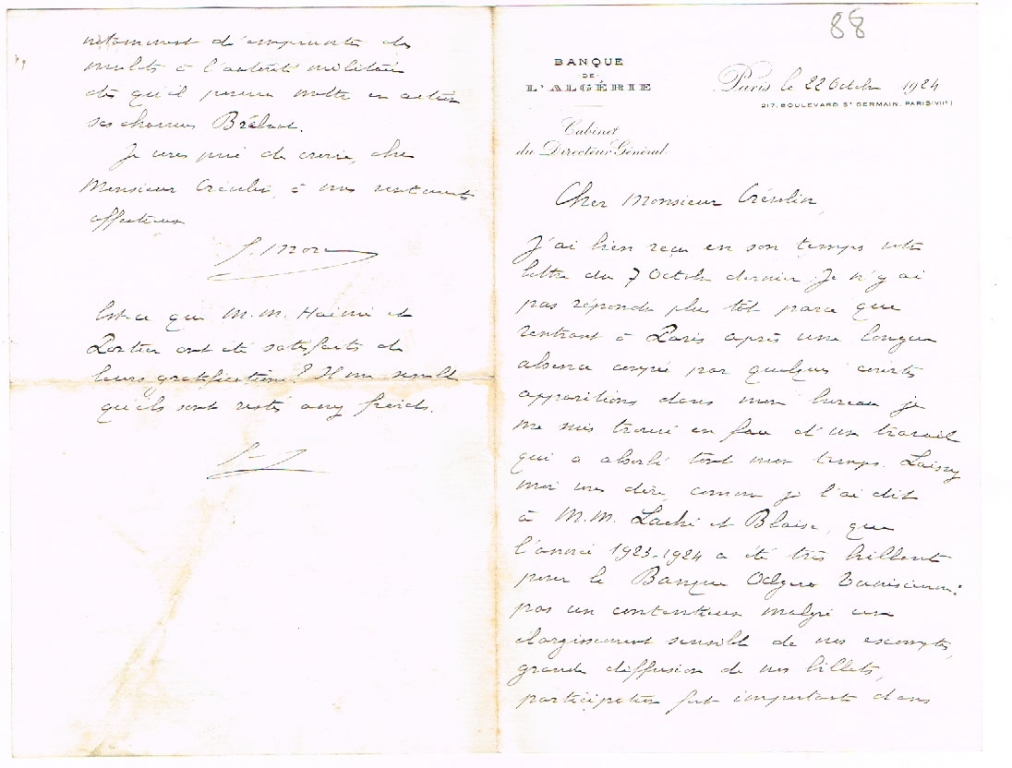 88
BANQUE
DE
L'ALGÉRIE
Cabinet
du Directeur Général
Paris le 22 Octobre 1924
217, BOULEVARD ST GERMAIN, PARIS (VIIe)
Cher Monsieur
J'ai bien reçu en son temps votre
lettre du 7 Octobre dernier. Je n'y ai
pas répondu plus tôt parce que
rentrant à Paris après une longue
absence coupée par quelques courtes
apparitions dans mon bureau je
me suis trouvé en face d'un travail
qui a absorbé tout mon temps. Laissez
moi vous dire, comme je l'ai dit
à M.M. et Blaise, que
l'année 1923-1924 a été très brillante
pour la Banque
pas un contentieux malgré un
élargissement sensible de nos escomptes,
grande diffusion de nos billets,
participation fort importante dans
notamment d'emprunter des
mulets à l'autorité militaire
dès qu'il pourra mettre en action
ses charrues Brabant.
Je vous prie de croire, cher
Monsieur à mes sentiments
affectueux
Est-ce que M.M. et
ont été satisfaits de
leurs gratifications? Il me semble
qu'ils sont restés froids.